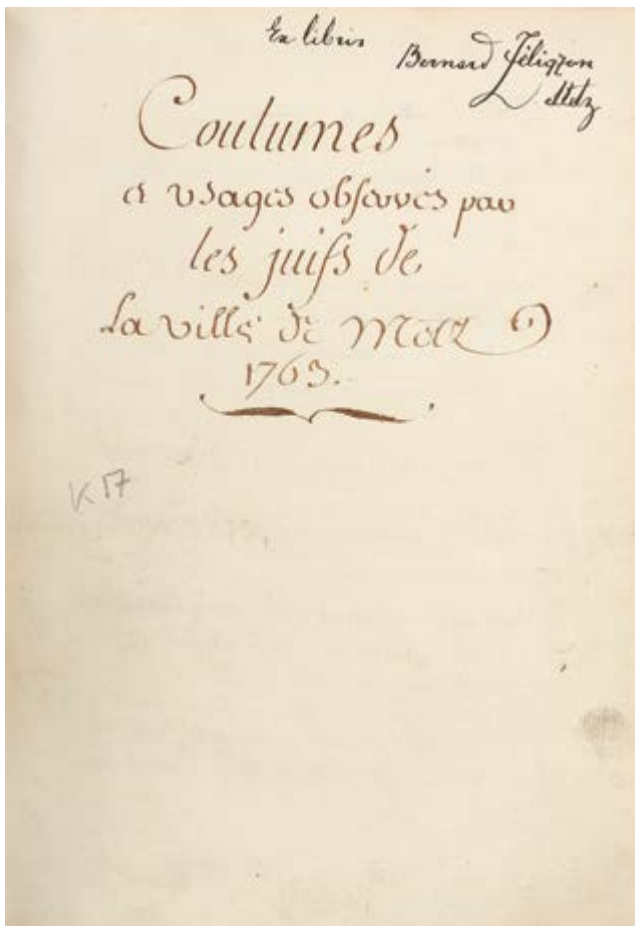 Ex libris
Bernard Zéliqzon
Metz
Coutumes
et usages observés par
les juifs de
La ville de Metz
1763.
K 17